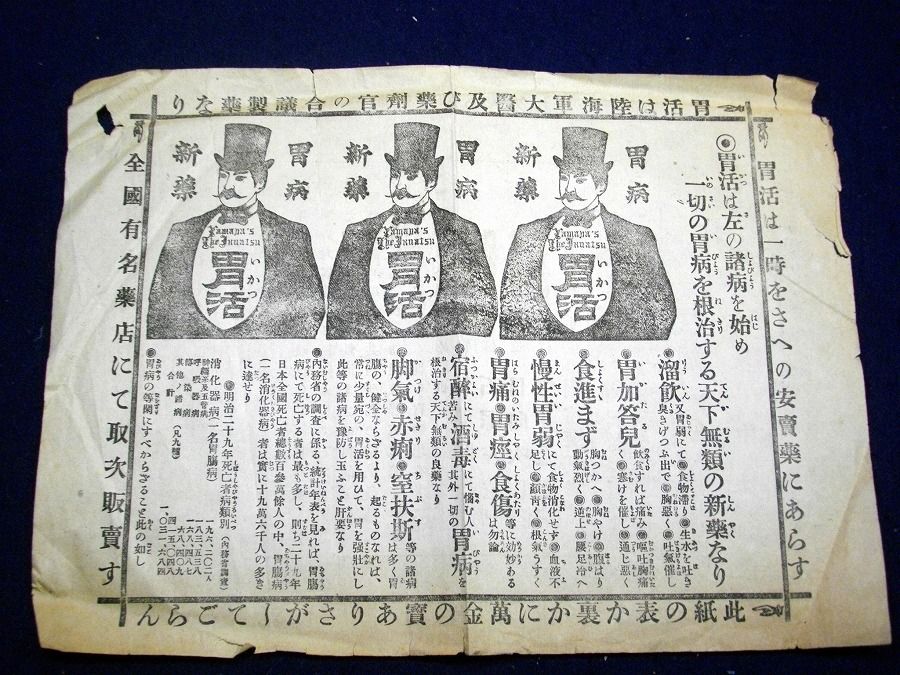 胃活は陸海軍大醫及び藥劑官の合議製藥なり
胃活は一時をさへの安賣藥にあらす
◉胃活は左の諸病を始め
一切の胃病を根治する天下無類の新藥なり
胃病
新藥
Yamana's
The Ikuatsu
胃活
いかつ
胃病
新藥
Yamana's
The Ikuatsu
胃活
いかつ
胃病
新藥
Yamana's
The Ikuatsu
胃活
いかつ
◉溜飲 又胃弱にて◉食物滯り◉生水を吐き
臭きげつぷ出で◉胸惡く◉吐氣催し
◉胃加答兒 飲食すれば痛み◉嘔吐胸痛
◉寒けを催し◉通じ惡く
◉食進まず 胸つかへ◉胸やけ◉腹はり
動氣烈く◉逆上◉腰足冷へ
◉慢性胃弱 にて食物消化せず◉血液不
足し◉顏靑く◉根氣うすく
◉胃痛◉胃痙◉食傷 等に効妙ある
は勿論
◉宿醉 にて苦み 酒毒 にて惱む人 其外一切の 胃病を
根治する天下無類の良藥なり
◉脚氣◉赤痢◉窒扶斯 等の諸病は多く胃
腹の、健全ならざるより、起るものなれば、
常に少量宛の、胃活を用ひて、胃を强壯にし
此等の諸病を豫防し玉ふこと肝要なり
◉內務省の調査に係る、統計年表を見れば、胃腸
病にて死亡する者は最も多し、則ち二十九年
日本全國死亡者總數百參萬餘人の中、胃腸病
(一名消化器病)者は實に十九萬六千人の多き
に達せり
◉明治二十九年死亡者病類別 (內務省調査)
消化器病(一名胃腸病) 一九六、二〇二人
神經系及五管病
呼吸器病
傳染病
其他ノ諸病 (凡九種)
合計 一、〇三一、六八四
◉胃病の等閑にすべからざること此の如し
全國有名藥店にて取次販賣す
此紙の表か裏かに萬金の寶ありさが〱てごらん